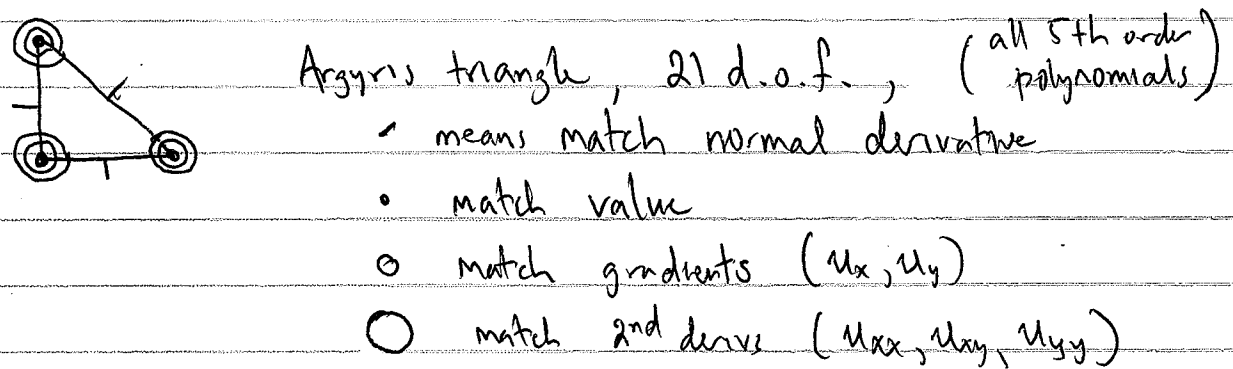 Argyris triangle, 21 d.o.f., (all 5th order polynomials)
means match normal derivative
• match value
○ match gradients (u_x, u_y)
◯ match 2nd derivs (u_xx, u_xy, u_yy)